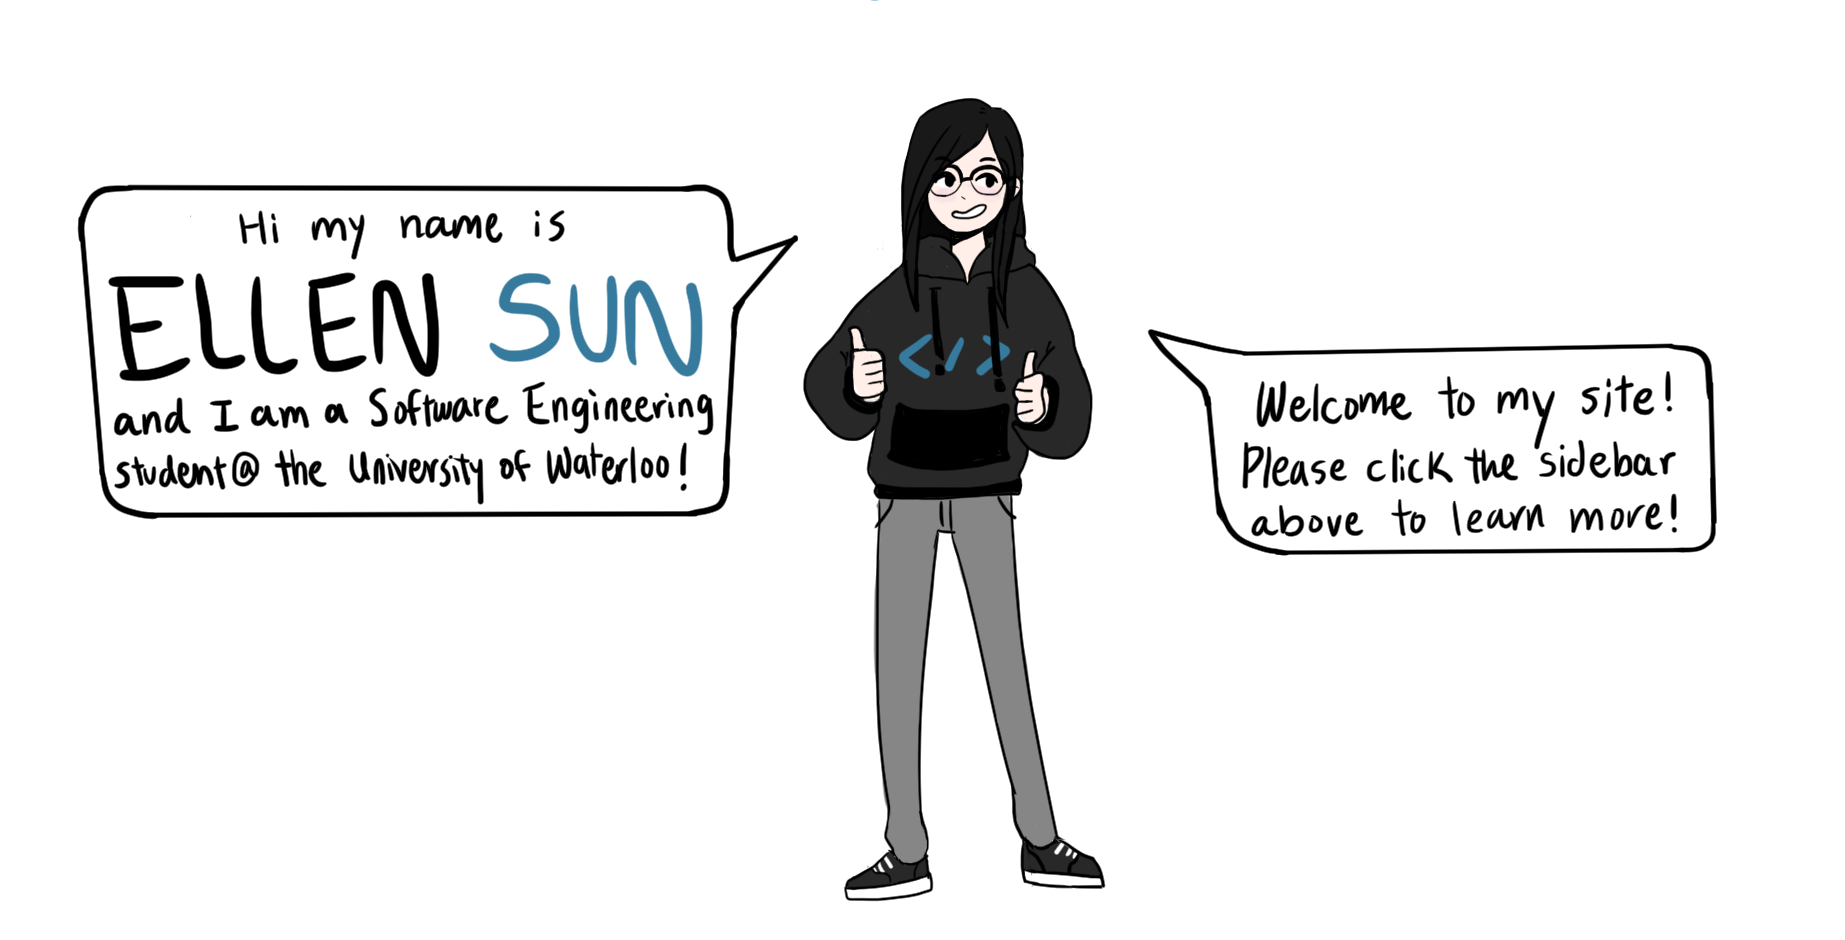 Hi my name is
ELLEN SUN
and I am a Software Engineering
student@ the University of Waterloo!
</>
Welcome to my site!
Please click the sidebar
above to learn more!